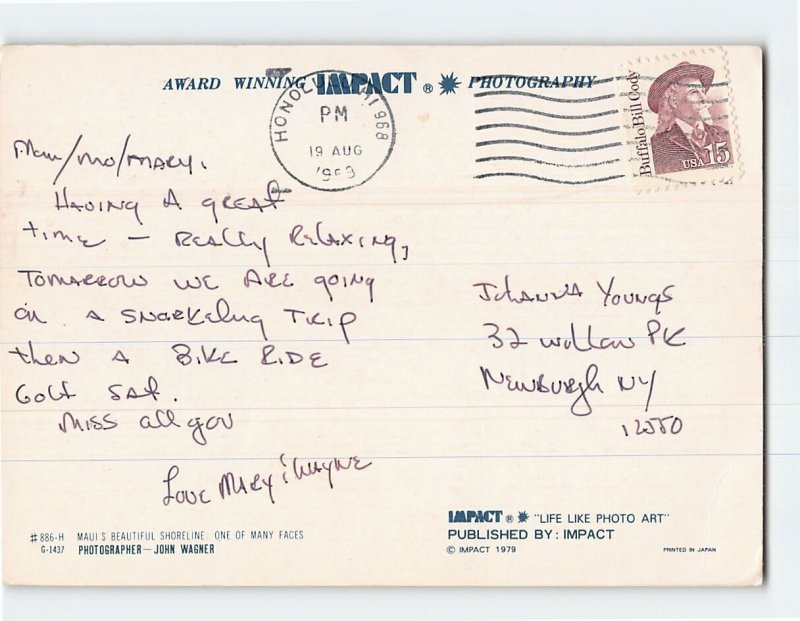 AWARD WINNING IMPACT ® PHOTOGRAPHY
HONOLULU HI 968
PM
19 AUG
Buffalo Bill Cody
USA 15
Mom/Mo/MARY,
HAVING A great
time — REALLY RELAXING,
TOMARROW WE ARE going
on A SNORKELING TRIP
then A BIKE RIDE
GOLF SAT.
MISS all you
Love MARY & WAYNE
JOHANNA YOUNGS
32 Willow PK
Newburgh NY
12550
#886-H MAUI'S BEAUTIFUL SHORELINE. ONE OF MANY FACES
G-1437 PHOTOGRAPHER—JOHN WAGNER
IMPACT ® "LIFE LIKE PHOTO ART"
PUBLISHED BY: IMPACT
© IMPACT 1979
PRINTED IN JAPAN